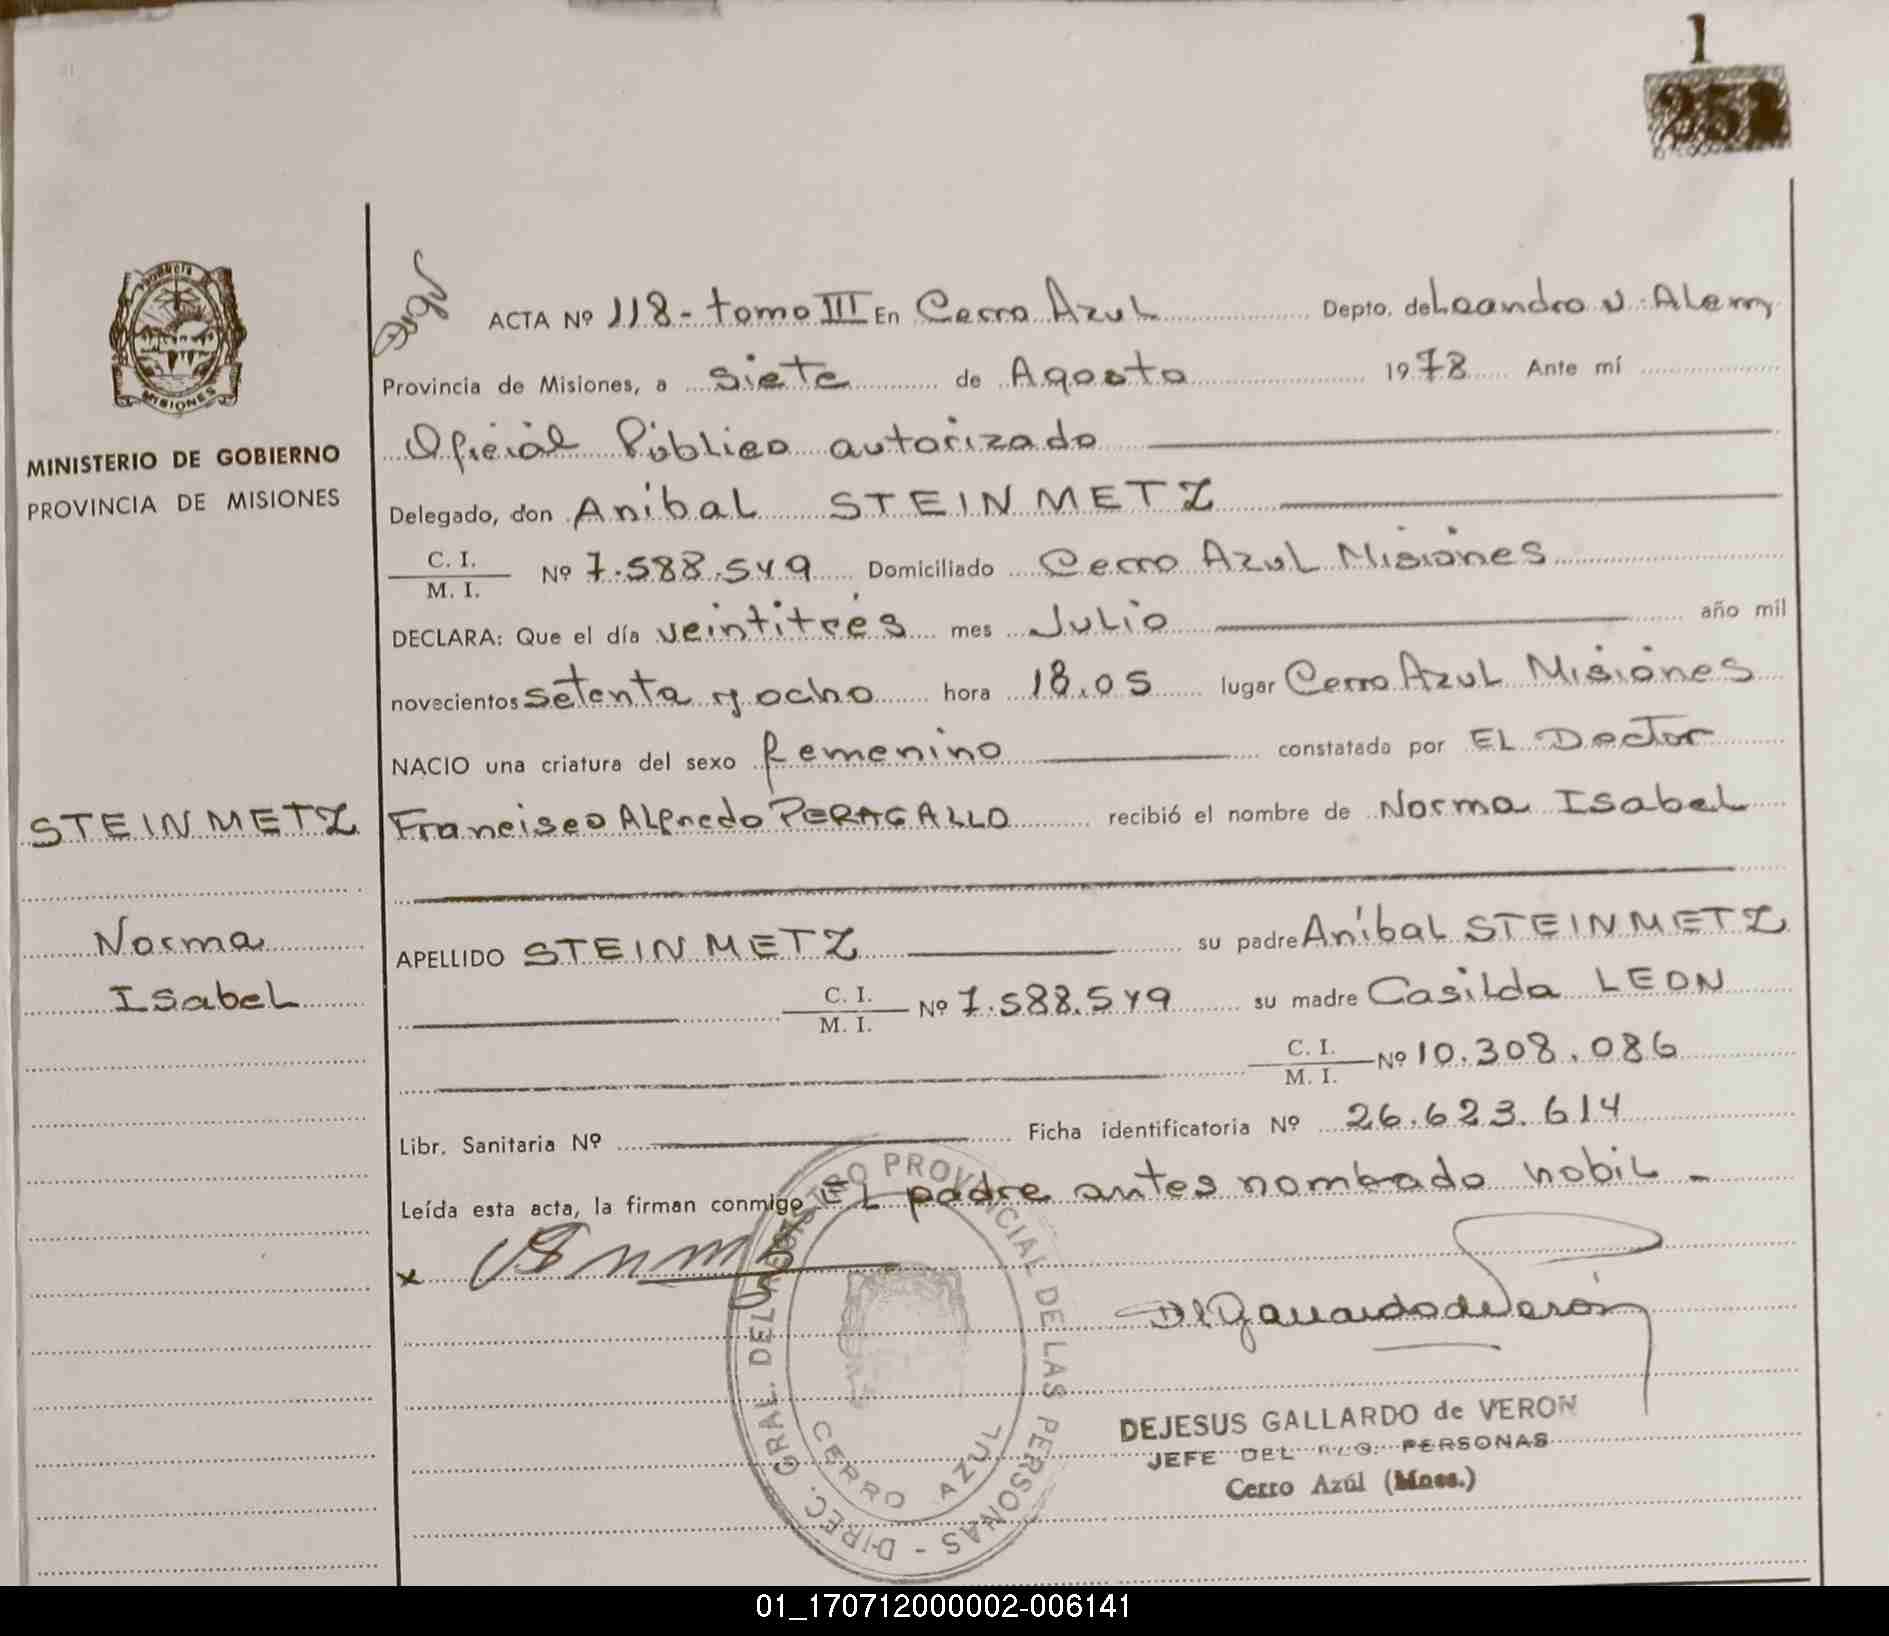 1
251
ACTA Nº 118 - tomo III En Cerro Azul Depto. de Leandro N. Alem
Provincia de Misiones, a siete de Agosto 1978 Ante mí
Oficial Público autorizado
MINISTERIO DE GOBIERNO
PROVINCIA DE MISIONES
Delegado, don Aníbal STEINMETZ
C. I.
M. I. Nº 7.588.549 Domiciliado Cerro Azul Misiones
DECLARA: Que el día veintitrés mes Julio año mil
novecientos setenta y ocho hora 18.05 lugar Cerro Azul Misiones
NACIO una criatura del sexo femenino constatada por EL Doctor
STEINMETZ
Francisco Alfredo PERAGALLO recibió el nombre de Norma Isabel
Norma
Isabel
APELLIDO STEINMETZ su padre Aníbal STEINMETZ
C. I.
M. I. Nº 7.588.549 su madre Casilda LEON
C. I.
M. I. Nº 10.308.086
Libr. Sanitaria Nº Ficha identificatoria Nº 26.623.614
Leída esta acta, la firman conmigo EL padre antes nombrado hobil -
x
DIREC. GRAL. DEL REGISTRO PROVINCIAL DE LAS PERSONAS -
CERRO AZUL
DGallardodeVerón
DEJESUS GALLARDO de VERON
JEFE DEL REG. PERSONAS
Cerro Azúl (Mnes.)
01_170712000002-006141